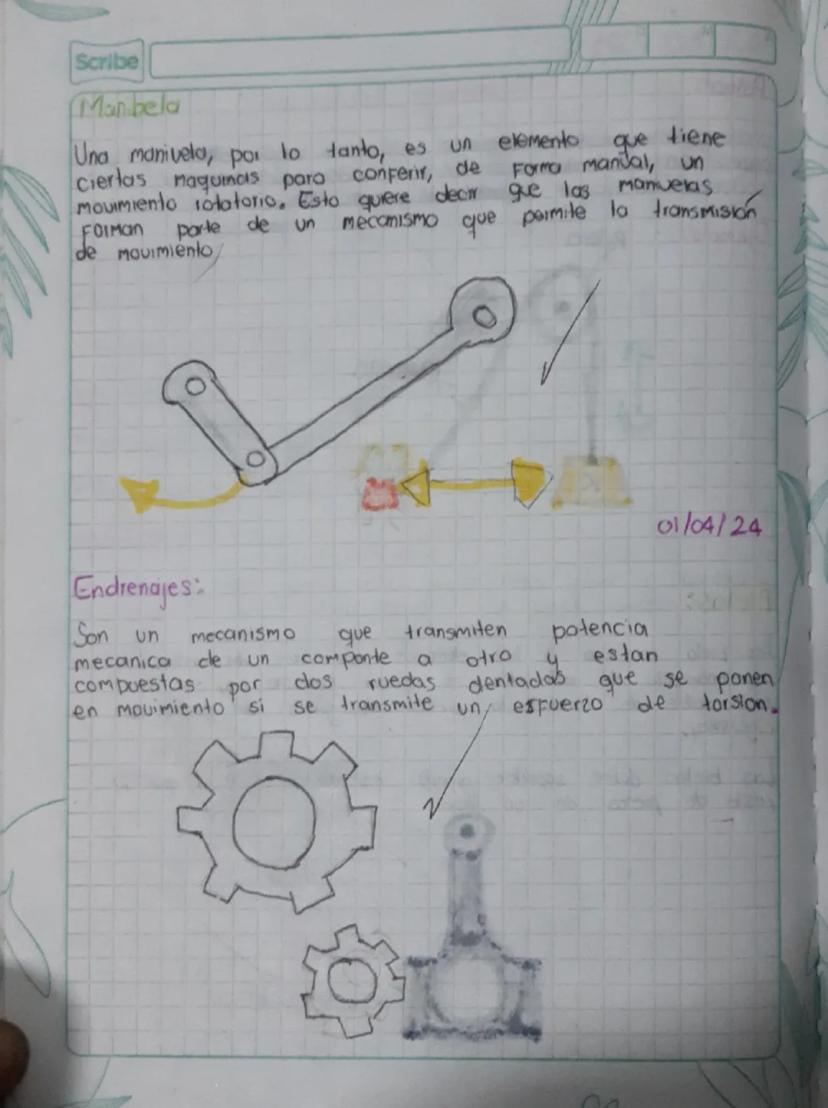 Scribe
Manibela
Una manivela, por lo tanto, es un elemento que tiene
ciertas maquinas para conferir, de forma manual, un
movimiento rotatorio. Esto quiere decir que las manivelas
forman parte de un mecanismo que permite la transmisión
de movimiento
01/04/24
Endrenajes:
Son un mecanismo que transmiten potencia
mecanica de un componte a otro y estan
compuestas por dos ruedas dentadas que se ponen
en movimiento si se transmite un esfuerzo de torsion.